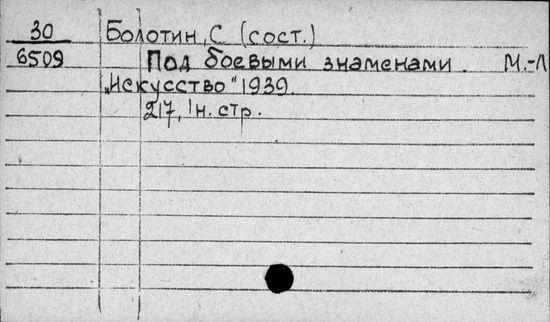 30 Болотин, С (сост.)
6509 Под боевыми знаменами. М.-Л
„Искусство" 1939.
217, 1н. стр.